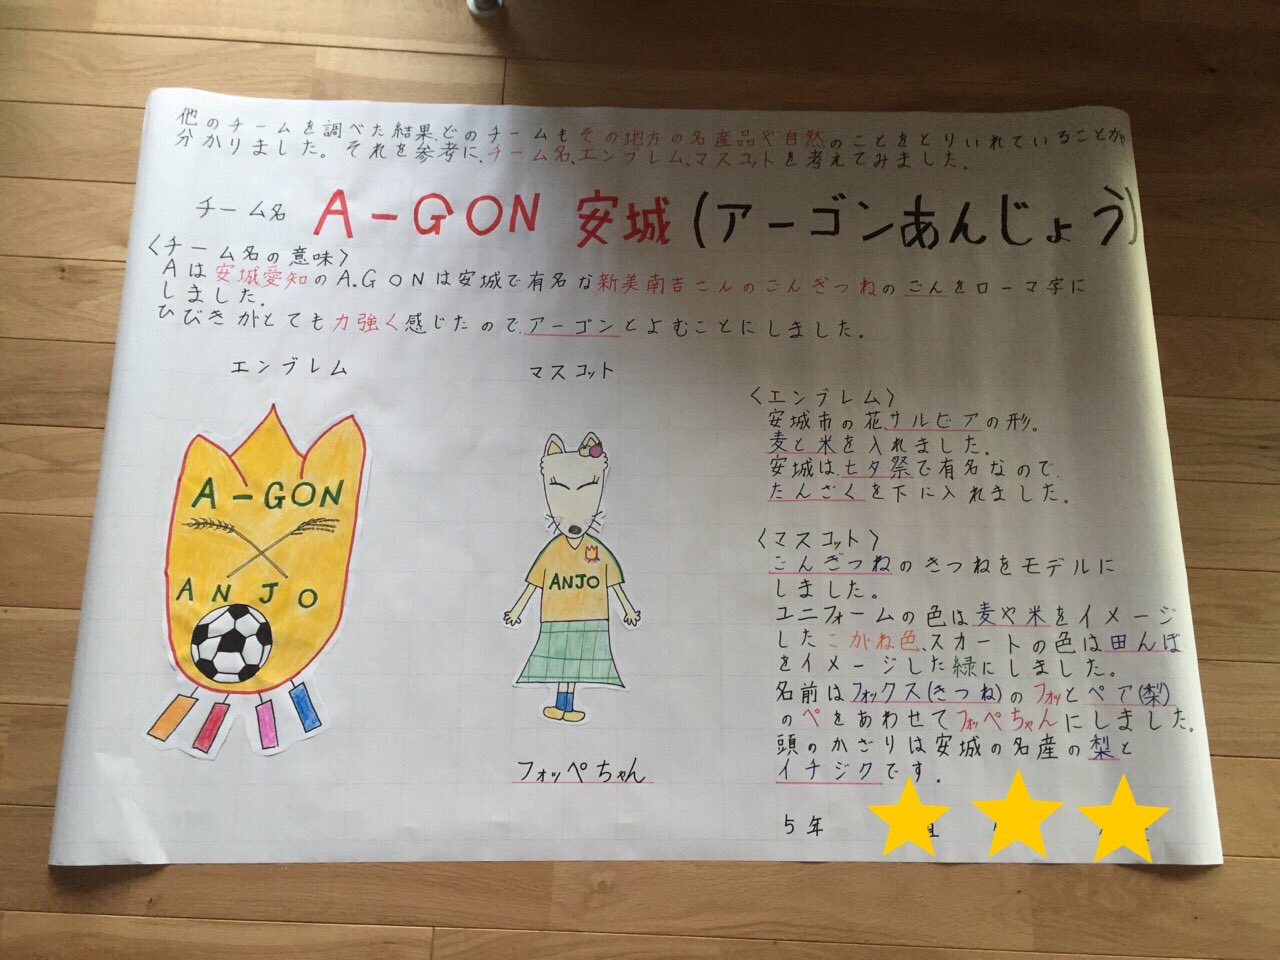 他のチームを調べた結果、どのチームもその地方の名産品や自然のことをとりいれていることが
分かりました。それを参考に、チーム名、エンブレム、マスコットを考えてみました。
チーム名 A-GON 安城(アーゴンあんじょう)
〈チーム名の意味〉
Aは安城愛知のA。GONは安城で有名な新美南吉さんのごんぎつねのごんをローマ字に
しました。
ひびきがとても力強く感じたので、アーゴンとよむことにしました。
エンブレム
マスコット
A-GON
ANJO
ANJO
フォッペちゃん
〈エンブレム〉
安城市の花、サルビアの形。
麦と米を入れました。
安城は、七夕祭で有名なので、
たんざくを下に入れました。
〈マスコット〉
ごんぎつねのきつねをモデルに
しました。
ユニフォームの色は麦や米をイメージ
したこがね色、スカートの色は田んぼ
をイメージした緑にしました。
名前はフォックス(きつね)のフォッとペア(梨)
のペをあわせてフォッペちゃんにしました。
頭のかざりは安城の名産の梨と
イチジクです。
5年